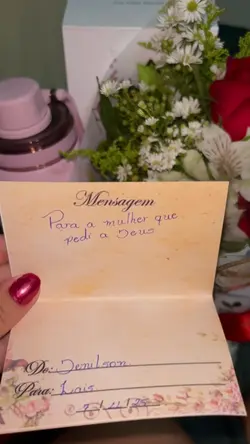 Mensagem
Para a mulher que
pedi a Deus
De: Jenilson
Para: Lais